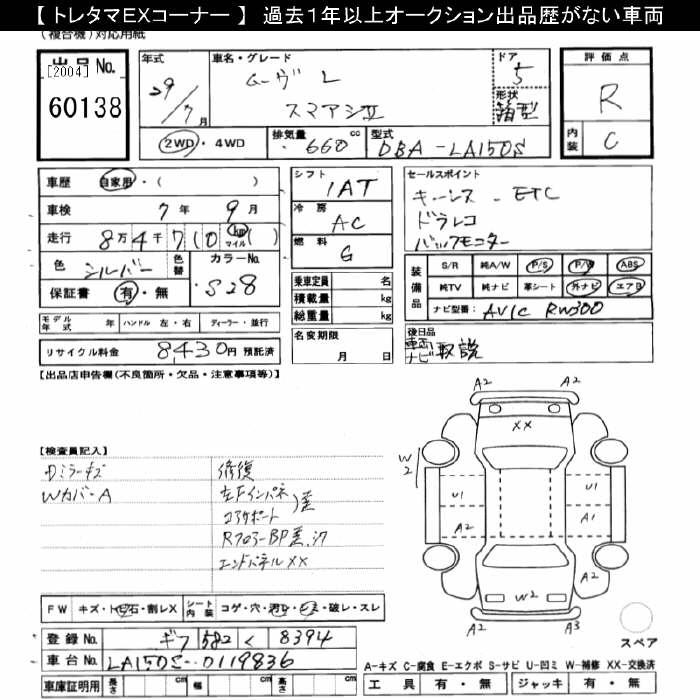 【 トレタマEXコーナー 】 過去１年以上オークション出品歴がない車両
(複合機) 対応用紙
出品 No.
[2004]
60138
年式
29/7月
車名・グレード
ムーヴ L
スマアシⅡ
ドア
5
形状
箱型
2WD ・ 4WD
排気量
660 cc
型式
DBA - LA150S
評価点
R
内装
C
車歴 自家用・( )
車検 7年 9月
走行 8万4千7(0 km マイル )
色 シルバー 色替 カラーNo. S28
保証書 有・無
モデル年式 年 ハンドル 左・右 ディーラー・並行
リサイクル料金 8430円 預託済
シフト
1AT
冷房
AC
燃料
G
乗車定員 名
積載量 kg
総重量 kg
名変期限
月 日
セールスポイント
キーレス ETC
ドラレコ
バックモニター
装備品
S/R 純A/W P/S P/W ABS
純TV 純ナビ 革シート 外ナビ エアB
ナビ型番: AVIC RW300
後日品
車両 ナビ 取説
【出品店申告欄(不良箇所・欠品・注意事項等)】
【検査員記入】
Dミラーキズ
Wカバー A
修復
左Fインパネ
コアサポート 歪
Rフロアー BP歪、汚
エンドパネル XX
A2 A2
XX
W2
U1 U1
A2 A1
A2
W2
A2 A3
スペア
FW キズ・トビ石・割レX シート内装 コゲ・穴・汚レ・シミ・破レ・スレ
登録No. ギフ 582 く 8394
車台No. LA150S-0119836
車庫証明用 長さ cm 幅 cm 高さ cm
A-キズ C-腐食 E-エクボ S-サビ U-凹ミ W-補修 XX-交換済
工具 有・無 ジャッキ 有・無